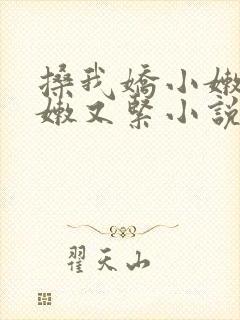 搡我嬌小嫩
嫩又緊小說
翟天山